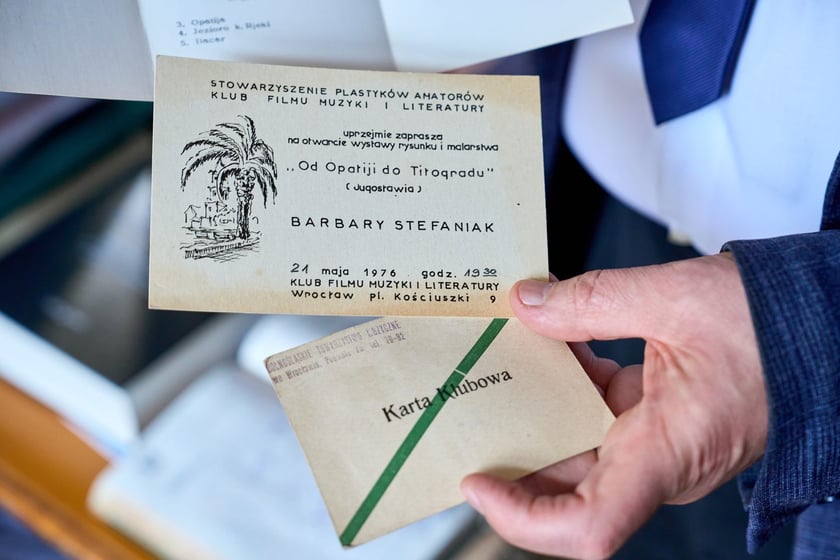 3. Opatija
4. Jezioro k. Rjeki
5. Bacar
STOWARZYSZENIE PLASTYKÓW AMATORÓW
KLUB FILMU MUZYKI I LITERATURY
uprzejmie zaprasza
na otwarcie wystawy rysunku i malarstwa
,,Od Opatiji do Titogradu"
(Jugosławia)
BARBARY STEFANIAK
21 maja 1976 godz. 19 30
KLUB FILMU MUZYKI I LITERATURY
Wrocław pl. Kościuszki 9
DOLNOŚLĄSKIE TOWARZYSTWO MUZYCZNE
Wrocław, tel.
Karta Klubowa